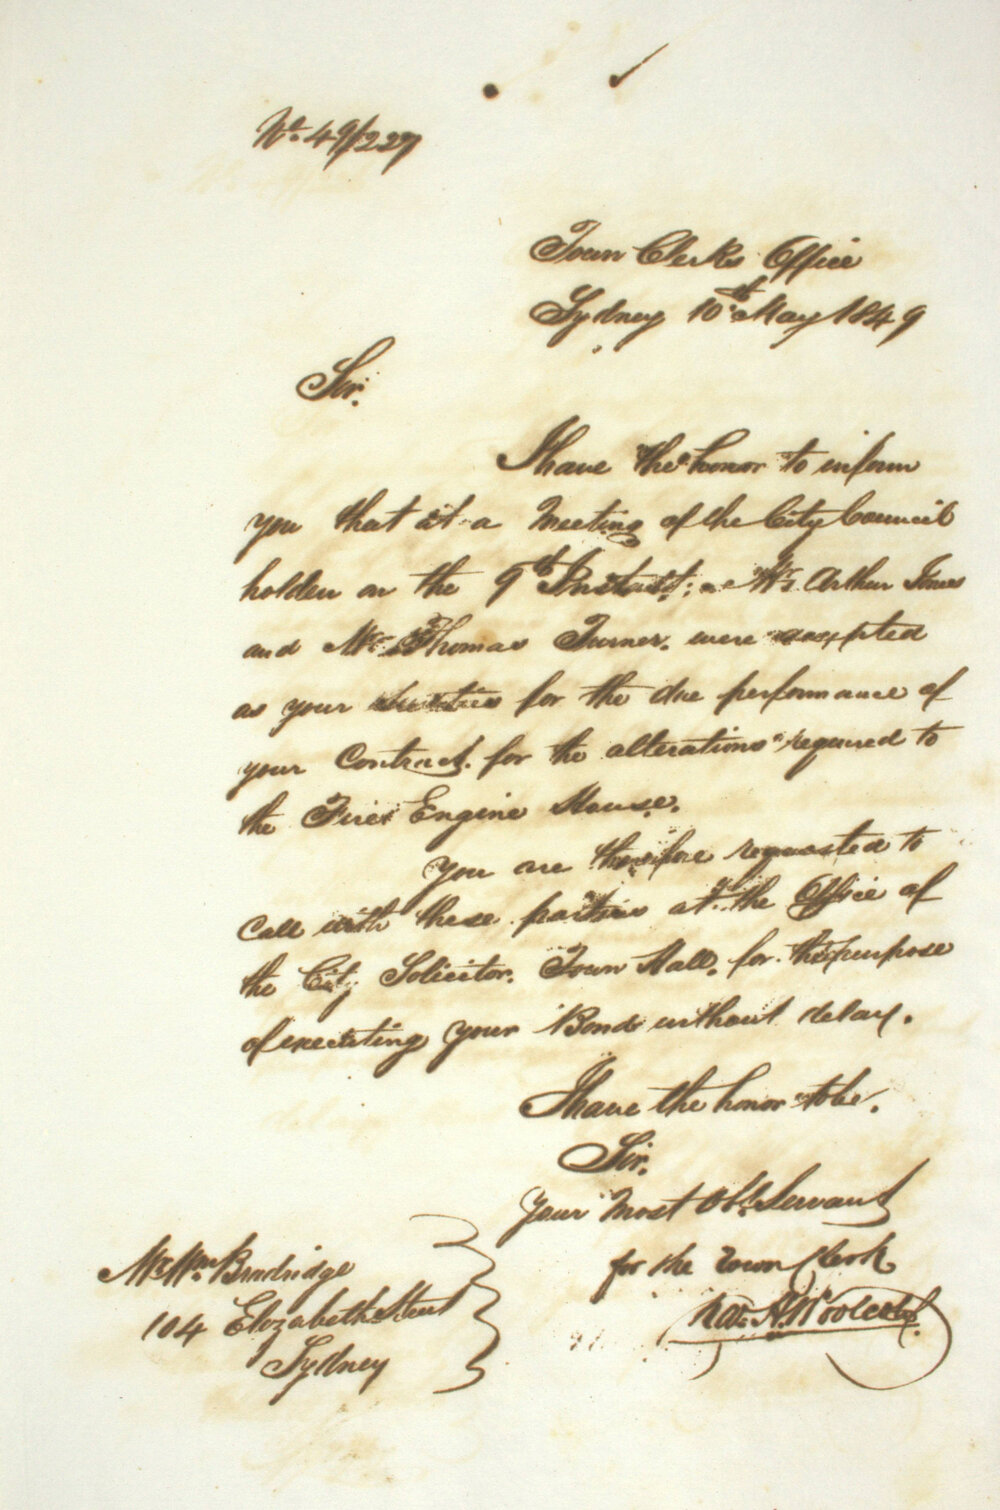 No. 49/227
Town Clerks Office
Sydney 10th May 1849
Sir.
I have the honor to inform
you that at a Meeting of the City Council
holden on the 9th Instant; Mr. Arthur Jones
and Mr. Thomas Turner. were accepted
as your Sureties for the due performance of
your Contract. for the alterations required to
the Fire Engine House.
You are therefore requested to
call with these parties at the Office of
the City Solicitor. Town Hall. for the purpose
of executing your Bonds without delay.
I have the honor to be.
Sir.
Your Most Obt. Servant
for the Town Clerk
A. Woolcott
Mr. Wm Bradridge
104 Elizabeth Street
Sydney